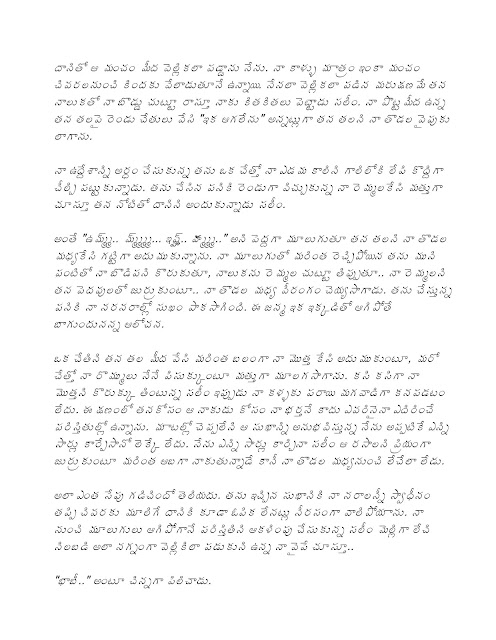 దానితో ఆ మంచం మీద వెల్లికలా పడ్డాను నేను. నా కాళ్ళు మాత్రం ఇంకా మంచం
చివరలనుంచి కిందకు వేలాడుతూనే ఉన్నాయి. నేనలా వెల్లికలా పడిన మరుక్షణమే తన
నాలుకతో నా బొడ్డు చుట్టూ రాస్తూ నాకు కితకితలు పెట్టాడు సలీం. నా పొట్ట మీద ఉన్న
తన తలపై రెండు చేతులు వేసి "ఇక ఆగలేను" అన్నట్లుగా తన తలని నా తొడల వైపుకు
లాగాను.

నా ఉద్దేశాన్ని అర్ధం చేసుకున్న తను ఒక చేత్తో నా ఎడమ కాలిని గాలిలోకి లేపి కొద్దిగా
చీల్చి పట్టుకున్నాడు. తను చేసిన పనికి రెండుగా విచ్చుకున్న నా రెమ్మలకేసి మత్తుగా
చూస్తూ తన నోటితో దానిని అందుకున్నాడు సలీం.

అంతే అని పెద్దగా మూలుగుతూ తన తలని నా తొడల
మధ్యకేసి గట్టిగా అదుముకున్నాను. నా మూలుగుతో మరింత రెచ్చిపోయిన తను ముని
పంటితో నా బొడిపని కొరుకుతూ, నాలుకను రెమ్మల చుట్టూ తిప్పుతూ.. నా రెమ్మలని
తన పెదవులతో జుర్రుకుంటూ.. నా తొడల మధ్య వీరంగం చెయ్యసాగాడు. తను చేస్తున్న
పనికి నా నరనరాల్లో సుఖం పాకసాగింది. ఈ జన్మ ఇక ఇక్కడితో ఆగిపోతే
బాగుందునన్న ఆలోచన.

ఒక చేతిని తన తల మీద వేసి మరింత బలంగా నా మొత్త కేసి అదుముకుంటూ, మరో
చేత్తో నా రొమ్ములు నేనే పిసుక్కుంటూ మత్తుగా మూలగసాగాను. కసి కసిగా నా
మొత్తని కొరుక్కు తింటున్న సలీం ఇప్పుడు నా కళ్ళకు పరాయి మగవాడిగా కనపడటం
లేదు. ఈ క్షణంలో తనకోసం ఆ నాకుడు కోసం నా భర్తనే కాదు ఎవరినైనా ఎదిరించే
పరిస్తితుల్లో ఉన్నాను. మాటల్లో చెప్పలేని ఆ సుఖాన్ని అనుభవిస్తున్న నేను అప్పటికే ఎన్ని
సార్లు కార్చేసానో లెక్కే లేదు. నేను ఎన్ని సార్లు కార్చినా సలీం ఆ రసాలని ప్రియంగా
జుర్రుకుంటూ మరింత ఆబగా నాకుతున్నాడే కానీ నా తొడల మధ్యనుంచి లేచేలా లేడు.

అలా ఎంత సేపు గడిచిందో తెలియదు. తను ఇచ్చిన సుఖానికి నా నరాలన్నీ స్వాధీనం
తప్పి చివరకు మూలిగే దానికి కూడా ఓపిక లేనట్లు నీరసంగా వాలిపోయాను. నా
నుంచి మూలుగులు ఆగిపోగానే పరిస్తితిని ఆకళింపు చేసుకున్న సలీం మెల్లిగా లేచి
నిలబడి అలా నగ్నంగా వెల్లికిలా పడుకుని ఉన్న నా వైపే చూస్తూ..

"భాబీ.." అంటూ చిన్నగా పిలిచాడు.